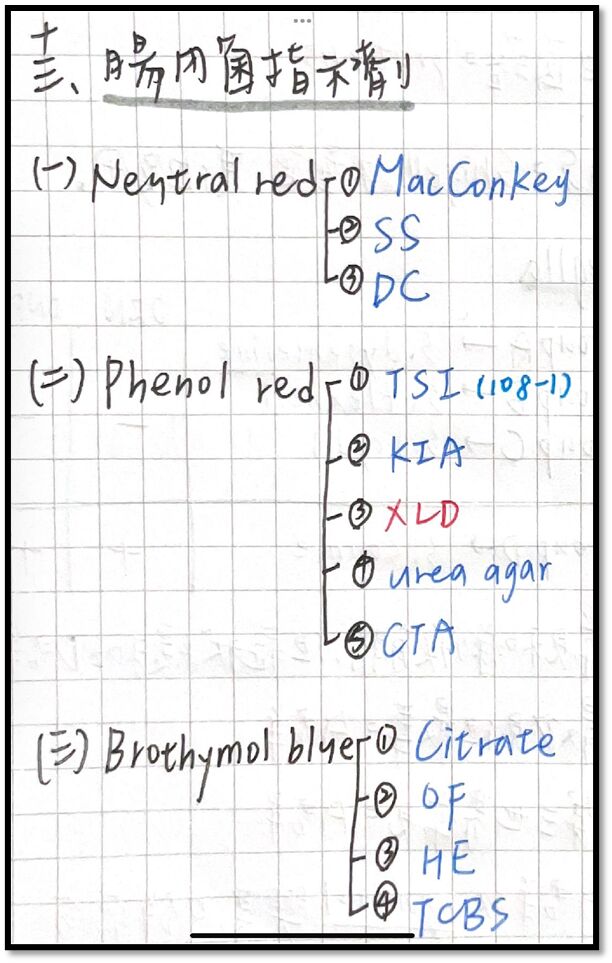 十三、腸內菌指示劑
(一) Neutral red ① MacConkey
② SS
③ DC
(二) Phenol red ① TSI (108-1)
② KIA
③ XLD
④ urea agar
⑤ CTA
(三) Brothymol blue ① Citrate
② OF
③ HE
④ TCBS